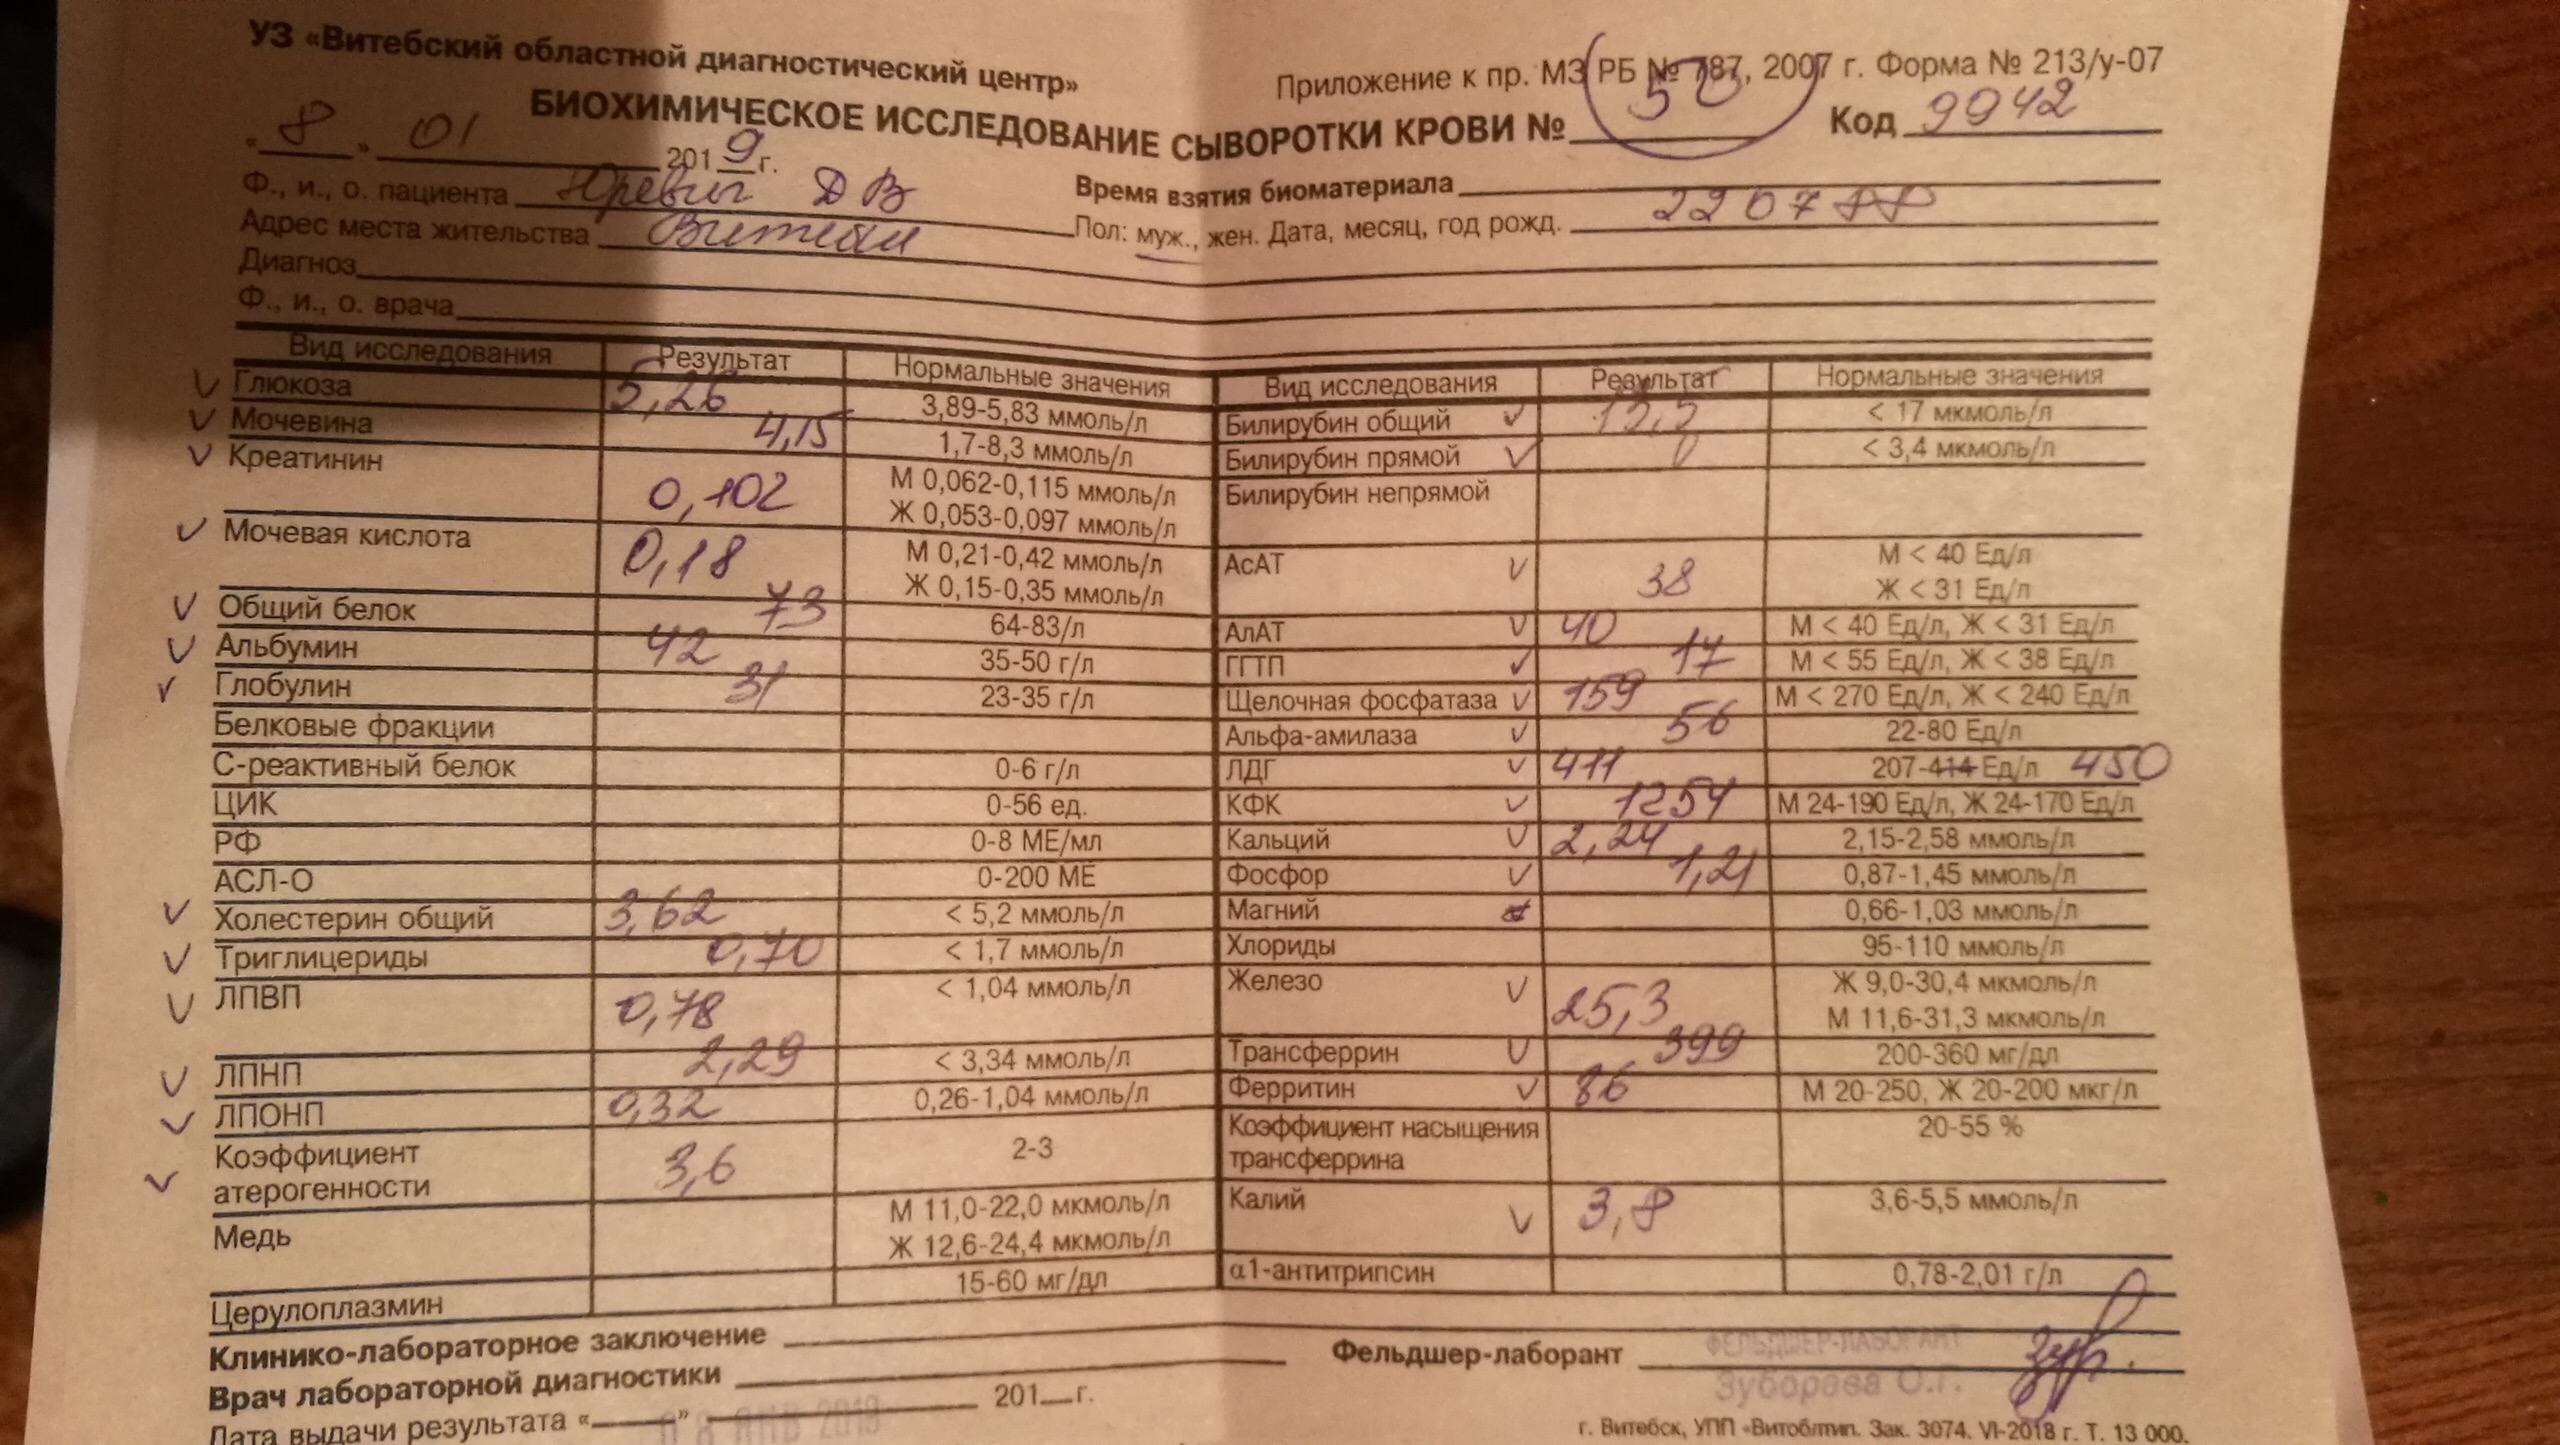 УЗ «Витебский областной диагностический центр»
Приложение к пр. МЗ РБ № 787, 2007 г. Форма № 213/у-07
БИОХИМИЧЕСКОЕ ИССЛЕДОВАНИЕ СЫВОРОТКИ КРОВИ № 50 Код 9942
«8» 01 2019 г.
Ф., и., о. пациента Юревич ДВ
Время взятия биоматериала
Адрес места жительства Витебск
Пол: муж., жен. Дата, месяц, год рожд. 220788
Диагноз
Ф., и., о. врача
Вид исследования Результат Нормальные значения
Глюкоза 5,26 3,89-5,83 ммоль/л
Мочевина 4,15 1,7-8,3 ммоль/л
Креатинин 0,102 М 0,062-0,115 ммоль/л
Ж 0,053-0,097 ммоль/л
Мочевая кислота 0,18 М 0,21-0,42 ммоль/л
Ж 0,15-0,35 ммоль/л
Общий белок 73 64-83/л
Альбумин 42 35-50 г/л
Глобулин 31 23-35 г/л
Белковые фракции
С-реактивный белок 0-6 г/л
ЦИК 0-56 ед.
РФ 0-8 МЕ/мл
АСЛ-О 0-200 МЕ
Холестерин общий 3,62 < 5,2 ммоль/л
Триглицериды 0,70 < 1,7 ммоль/л
ЛПВП 0,78 < 1,04 ммоль/л
ЛПНП 2,29 < 3,34 ммоль/л
ЛПОНП 0,32 0,26-1,04 ммоль/л
Коэффициент
атерогенности 3,6 2-3
Медь М 11,0-22,0 мкмоль/л
Ж 12,6-24,4 мкмоль/л
Церулоплазмин 15-60 мг/дл
Вид исследования Результат Нормальные значения
Билирубин общий < 17 мкмоль/л
Билирубин прямой 0 < 3,4 мкмоль/л
Билирубин непрямой
АсАТ 38 М < 40 Ед/л
Ж < 31 Ед/л
АлАТ 40 М < 40 Ед/л, Ж < 31 Ед/л
ГГТП 17 М < 55 Ед/л, Ж < 38 Ед/л
Щелочная фосфатаза 159 М < 270 Ед/л, Ж < 240 Ед/л
Альфа-амилаза 56 22-80 Ед/л
ЛДГ 411 207-414 Ед/л 450
КФК 1254 М 24-190 Ед/л, Ж 24-170 Ед/л
Кальций 2,24 2,15-2,58 ммоль/л
Фосфор 1,21 0,87-1,45 ммоль/л
Магний 0,66-1,03 ммоль/л
Хлориды 95-110 ммоль/л
Железо 25,3 Ж 9,0-30,4 мкмоль/л
М 11,6-31,3 мкмоль/л
Трансферрин 399 200-360 мг/дл
Ферритин 86 М 20-250, Ж 20-200 мкг/л
Коэффициент насыщения 20-55 %
трансферрина
Калий 3,8 3,6-5,5 ммоль/л
α1-антитрипсин 0,78-2,01 г/л
Клинико-лабораторное заключение
Врач лабораторной диагностики
Фельдшер-лаборант
ФЕЛЬДШЕР-ЛАБОРАНТ
Зуборева О.Г.
Дата выдачи результата « » 201 г.
08 ЯНВ 2019
г. Витебск, УПП «Витоблтип. Зак. 3074. VI-2018 г. Т. 13 000.